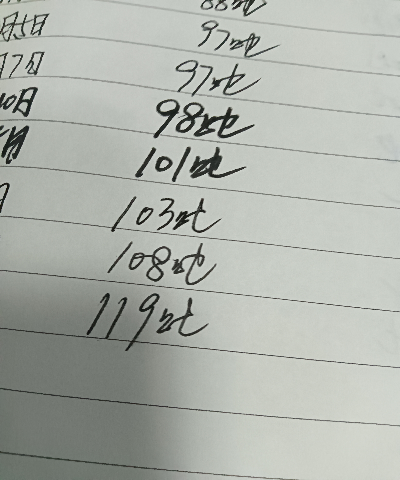 88吨
月5日 97吨
月7日 97吨
10日 98吨
日 101吨
日 103吨
108吨
119吨